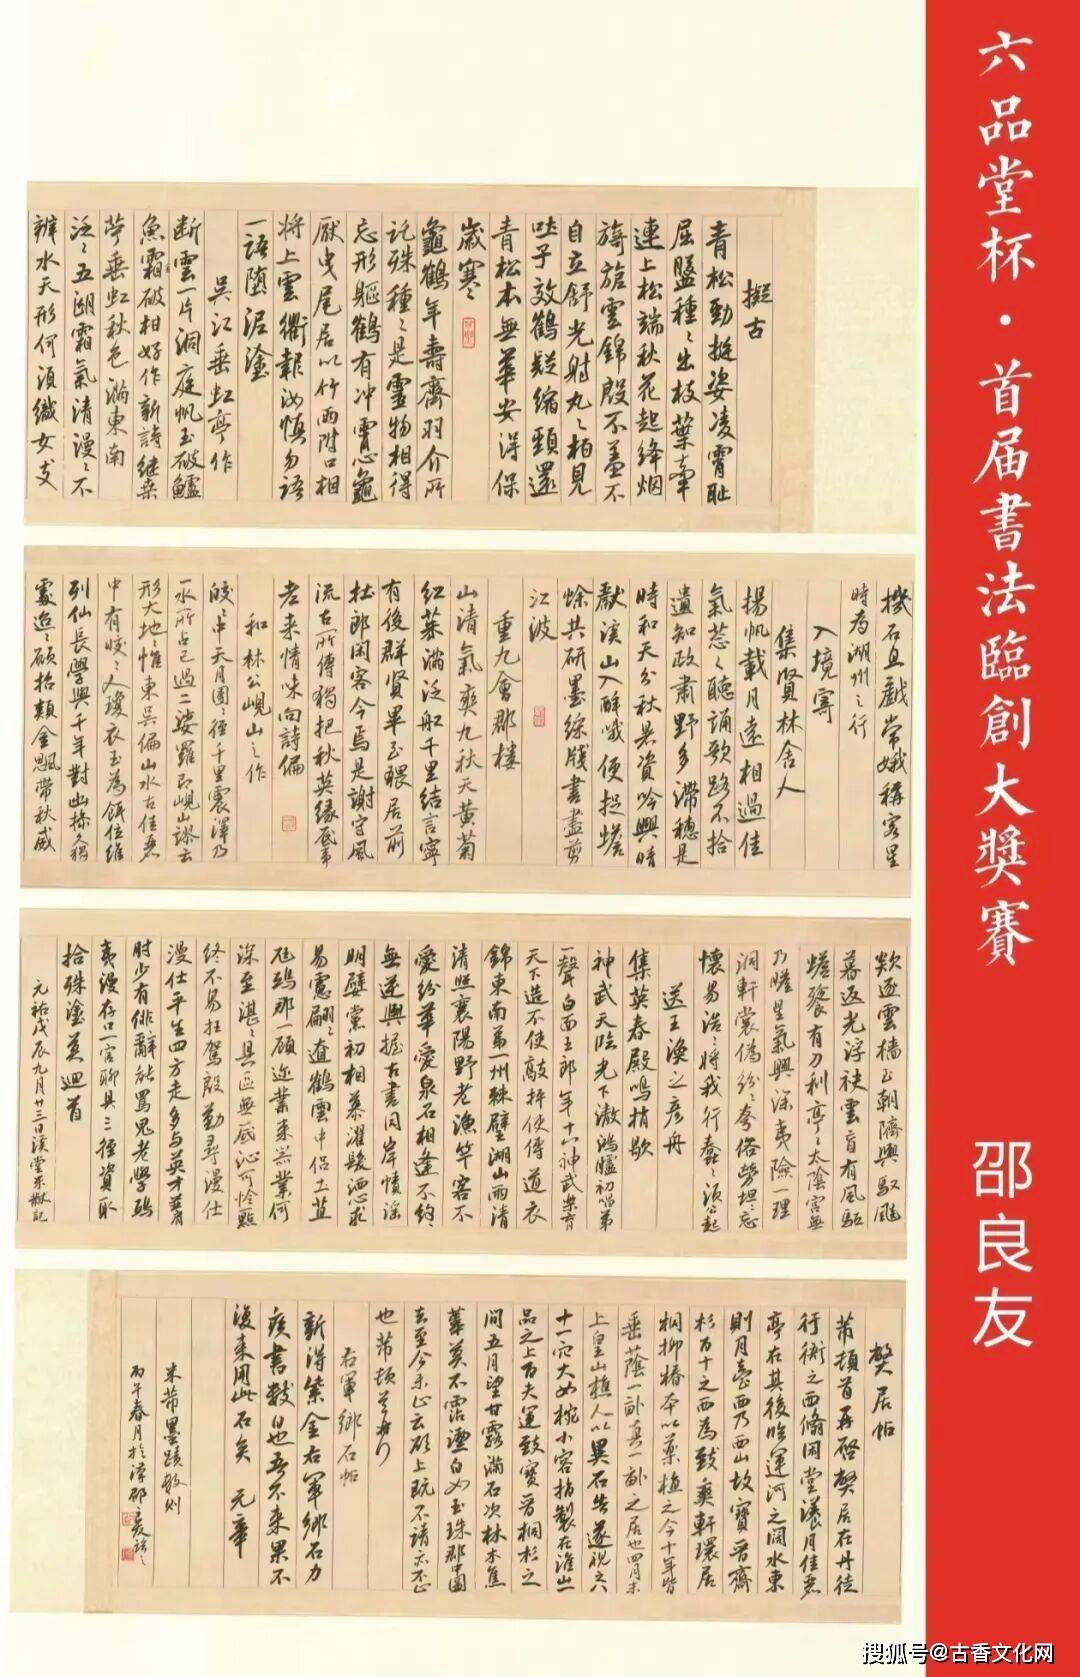 六品堂杯·首届書法臨創大獎賽
邵良友
擬古
青松勁挺姿凌霄恥
屈盤種々出枝葉牽
連上松端秋花起絳烟
旖旎雲錦殷不羞不
自立舒光射丸々柏見
吐子效鶴疑縮頸還
青松本無華安得保
歲寒々
龜鶴年壽齊羽介所
託殊種々是靈物相得
忘形軀鶴有冲霄心龜
厭曳尾居以竹兩附口相
將上雲衢報汝慎勿語
一語墮泥塗
吳江垂虹亭作
断雲一片洞庭帆玉破鱸
魚霜破柑好作新詩継桑
苧垂虹秋色滿東南
泛々五湖霜氣清漫々不
辨水天形何須織女支
機石且戯常娥稱客星
時為湖州之行
入境寄
集賢林舍人
揚帆載月遠相過佳
氣蔥々聽誦歌路不拾
遺知政肅野多滯穗是
時和天分秋暑資吟興晴
獻溪山入醉哦便捉蟾
蜍共研墨綵牋書盡剪
江波
重九會郡樓
山清氣爽九秋天黃菊
紅茱滿泛船千里結言寧
有後群賢畢至猥居前
杜郎閑客今焉是謝守風
流古所傳獨把秋英緣底事
老來情味向詩偏
和林公峴山之作
皎々中天月團々徑千里震澤乃
一水所占已過二娑羅即峴山謬云
形大地惟東吳偏山水古佳麗
中有皎々人瓊衣玉為餌位維
列仙長學與千年對幽操久獨
處迢々願招類金飈帶秋威
欻逐雲檣至朝隮輿馭飈
暮返光浮袂雲盲有風驅
蟾餮有刀利亭々太陰宮無
乃瞻星氣興深夷險一理
洞軒裳偽紛々夸俗勞坦々忘
懷易浩々將我行蠢々須公起
送王渙之彥舟
集英春殿鳴捎歇
神武天臨光下澈鴻臚初唱第
一聲白面王郎年十八神武樂育
天下造不使敲枰使傳道衣
錦東南第一州棘壁湖山兩清
清照襄陽野老漁竿客不
愛紛華愛泉石相逢不約
無逆輿握古書同岸幘淫
朋嬖黨初相慕濯髮洒心求
易慮翩々遼鶴雲中侶土苴
尫鴟那一顧邇業來業何
深至湛々具區無底沁可怜點
終不易枉駕殷勤尋漫仕
漫仕平生四方走多與英才並
肘少有俳辭能罵鬼老學鴟
夷漫存口一官聊具三徑資取
捨殊塗莫迴首
元祐戊辰九月廿三日溪堂米黻記
弊居帖
芾頓首再啓弊居在丹徒
行衙之西翛閑堂漾月佳麗
亭在其後臨運河之闊水東
則月臺西乃西山故寶晉齋
杉百十之西為致爽軒環居
桐柳椿本以藥植之今十年皆
垂蔭一畝真一畝之居也四月末
上皇山樵人以異石告遂視之八
十一穴大如椀小容指製在淮山一
品之上百夫運致寶晉桐杉之
間五月望甘露滿石次林木焦
葦莫不霑潔白如玉珠郡中圖
去至今未止云欲上既不請亦不止
也芾頓首再行
右軍鄉石帖
新得紫金右軍鄉石力
疾書數日也吾不來果不
復來用此石矣 元章
米芾墨蹟數則
搜狐号@古香文化网